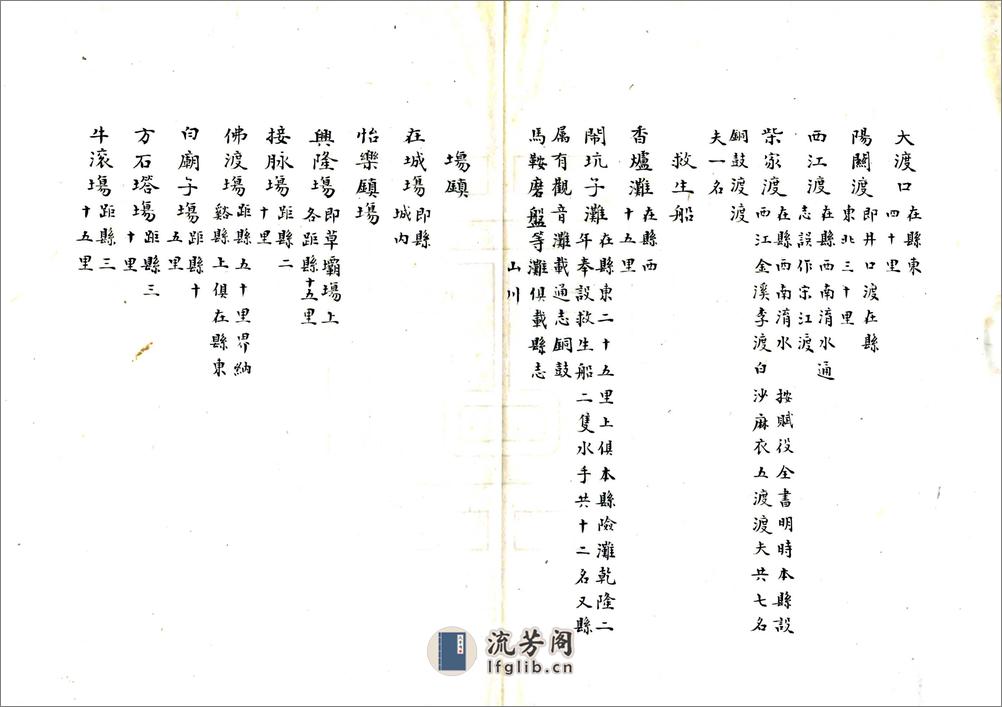 大渡口在縣東四十里
陽關渡即井口渡在縣東北三十里
西江渡在縣西南淯水通志誤作宗江渡
柴家渡在縣西南淯水按賦役全書明時本縣設西江金溪李渡白沙麻衣五渡渡夫共七名
銅鼓渡渡夫一名
救生船
香爐灘在縣西十五里
鬧坑子灘在縣東二十五里上俱本縣險灘乾隆二年奉設救生船二隻水手共十二名又縣
属有觀音灘載通志銅鼓
馬鞍磨盤等灘俱載縣志山川
塲鎮
在城塲即縣城内
怡樂鎮塲
興隆塲即草壩塲上各距縣十五里
接脉塲距縣二十里
佛渡塲距縣五十里界納谿縣上俱在縣東
白廟子塲距縣十五里
方石塔塲距縣三十里
牛滾塲距縣三十五里
流芳阁
lfglib.cn